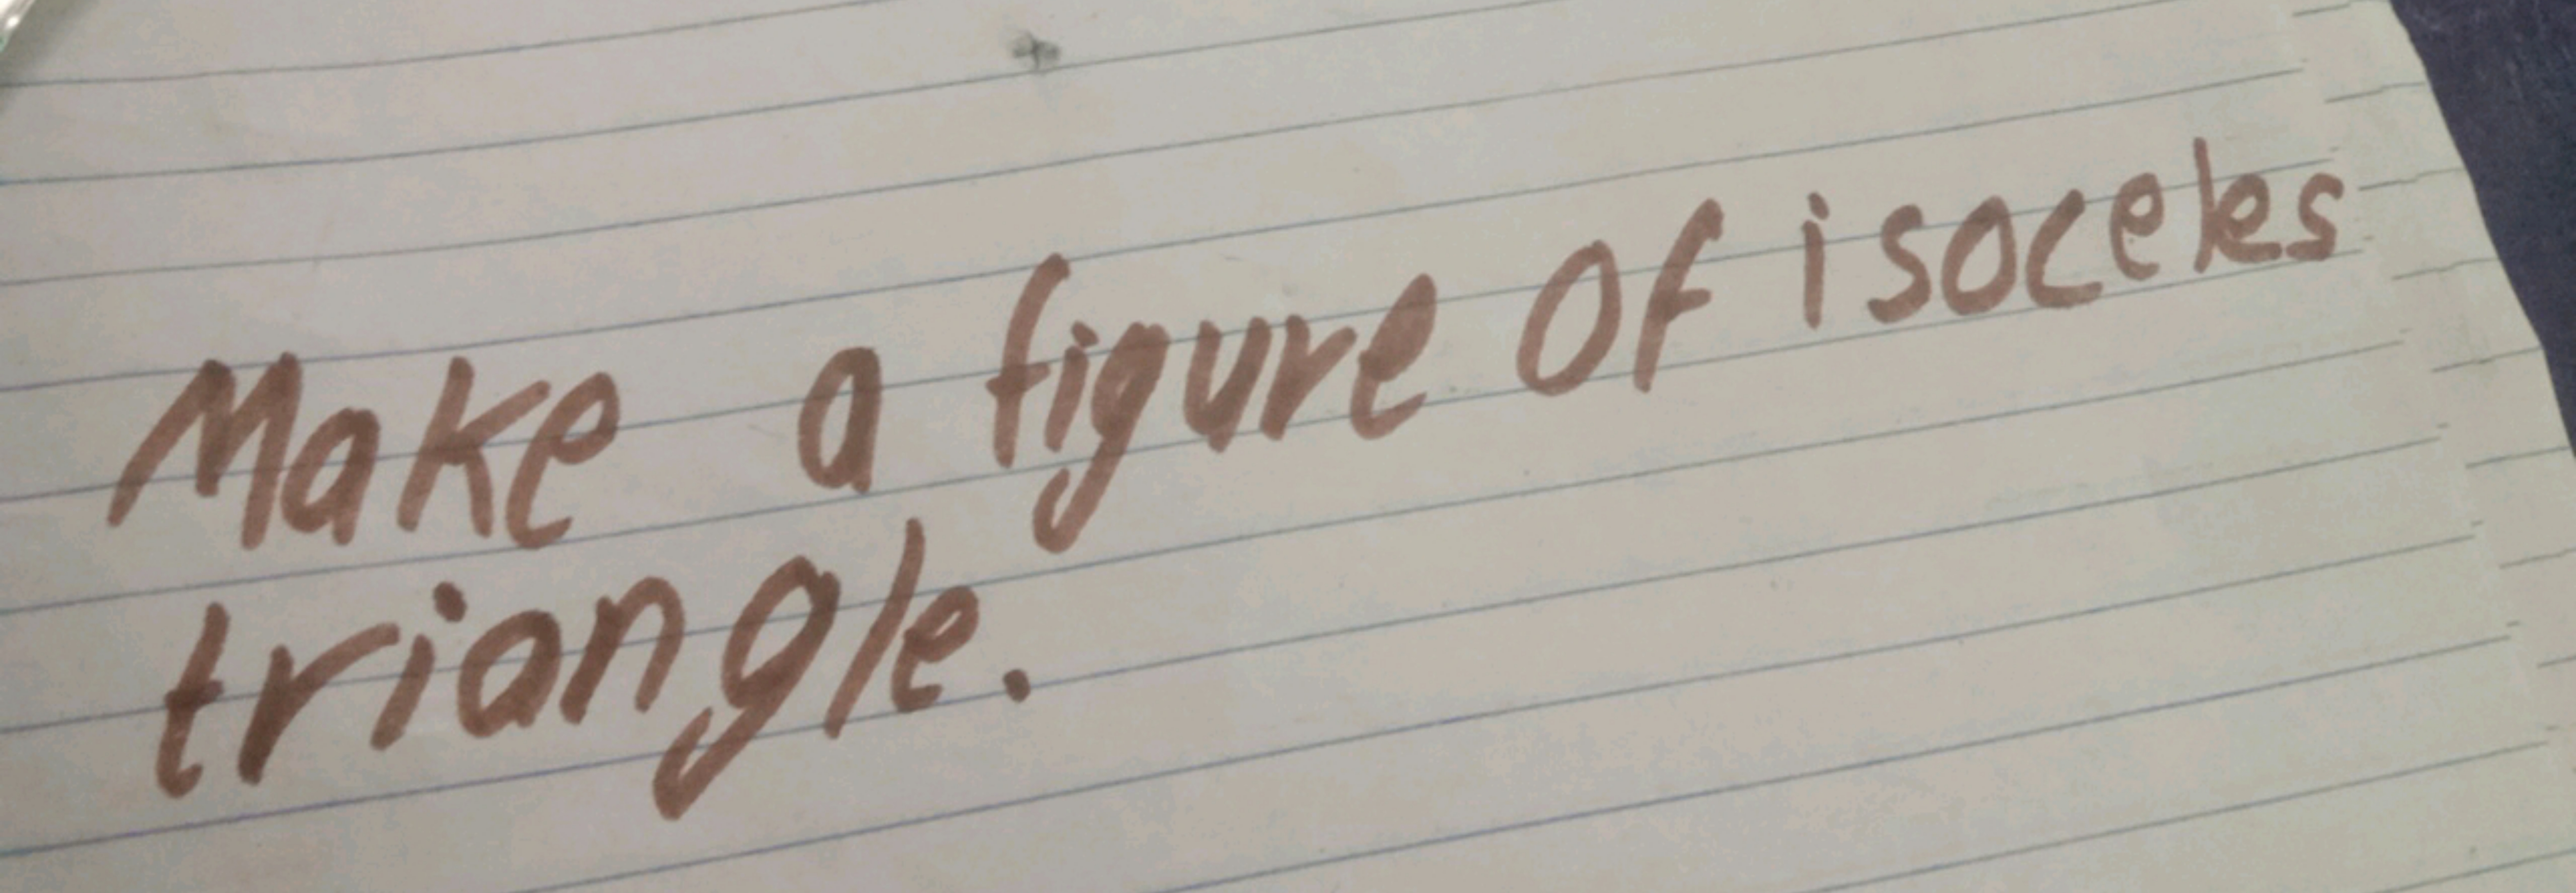 Make a figure of isoceles
triangle.